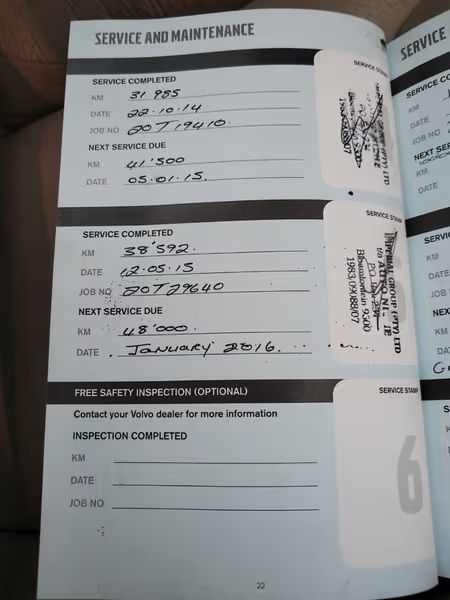 SERVICE AND MAINTENANCE
SERVICE COMPLETED
KM 31 985
DATE 22.10.14
JOB NO 20T19410
NEXT SERVICE DUE
KM 41'500
DATE 05.01.15.
SERVICE STAMP
SERVICE COMPLETED
KM 38'592.
DATE 12.05.15
JOB NO 20T29640
NEXT SERVICE DUE
KM 48'000.
DATE January 2016.
SERVICE STAMP
IMPERIAL GROUP (PTY) LTD
t/a
Bloemfontein 9300
1983/09088/07
FREE SAFETY INSPECTION (OPTIONAL)
SERVICE STAMP
Contact your Volvo dealer for more information
INSPECTION COMPLETED
KM
DATE
JOB NO
6
22
SERVICE
DATE
JOB NO
KM
DATE
KM
DATE
JOB
NEXT
KM
DATE